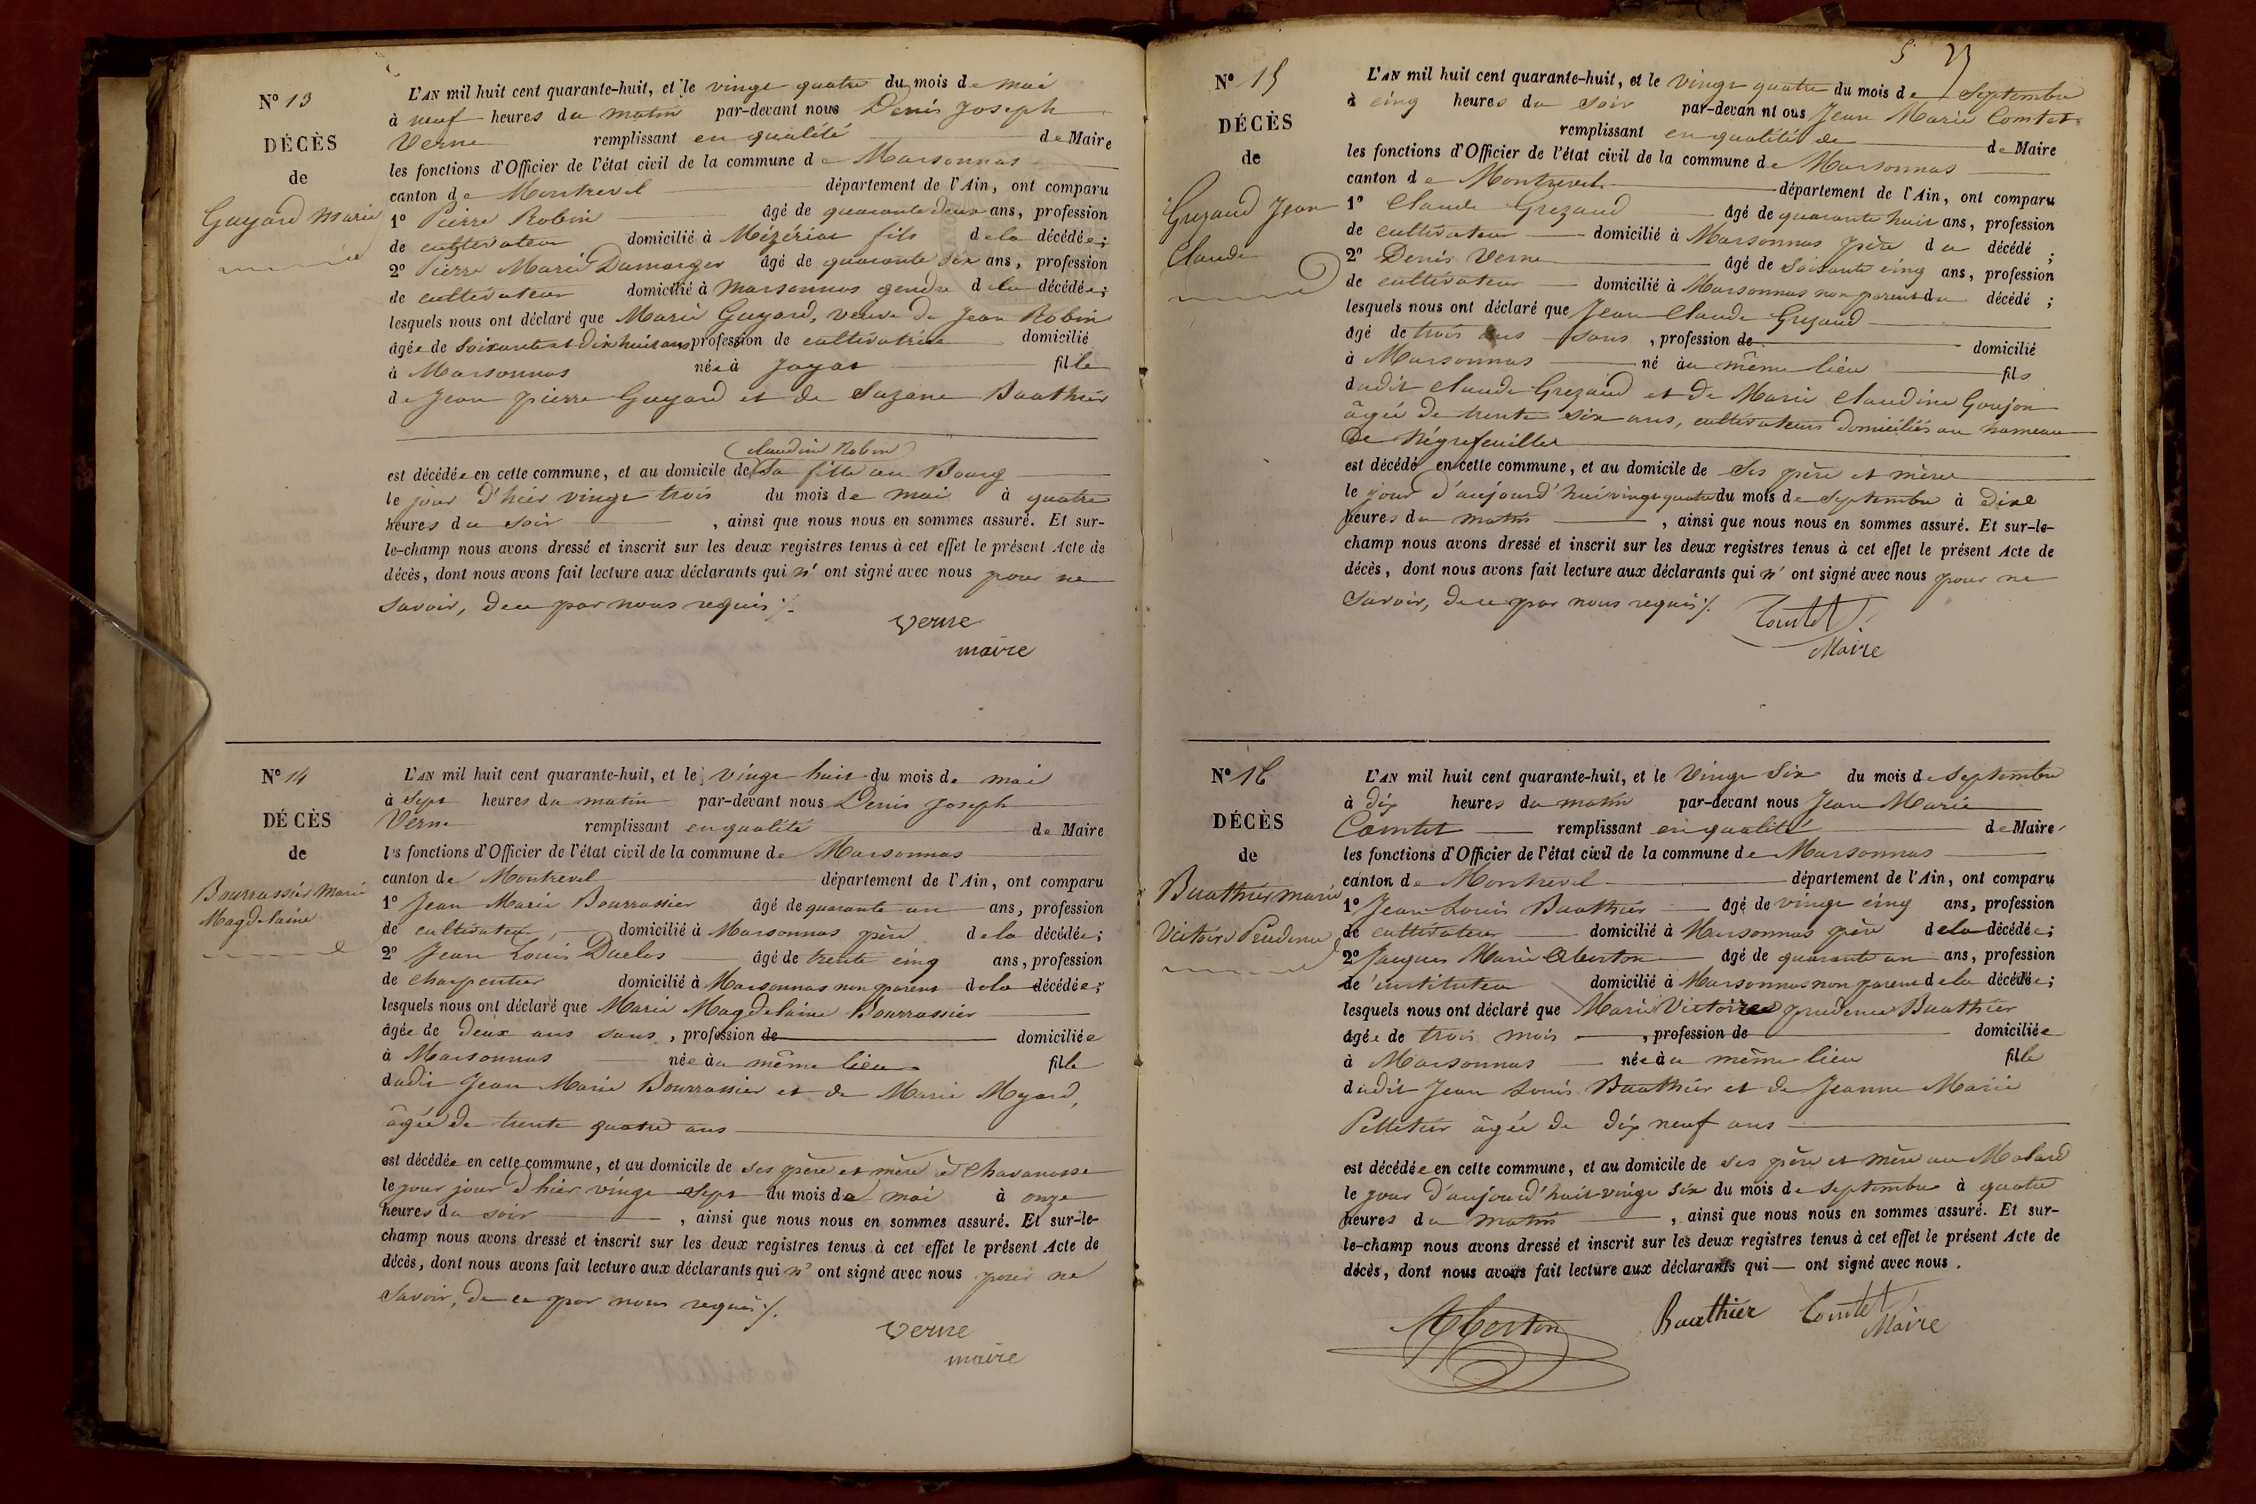 N° 13
DÉCÈS
de
Guyard Marie
L'AN mil huit cent quarante-huit, et le vingt quatre du mois de mai
à neuf heures du matin par-devant nous Denis Joseph
Verne remplissant en qualité de Maire
les fonctions d'Officier de l'état civil de la commune de Marsonnas
canton de Montrevel département de l'Ain, ont comparu
1° Pierre Robin âgé de quarante deux ans, profession
de cultivateur domicilié à Mézériat fils de la décédée;
2° Pierre Marie Damanger âgé de quarante six ans, profession
de cultivateur domicilié à Marsonnas gendre de la décédée;
lesquels nous ont déclaré que Marie Guyard, veuve de Jean Robin
âgée de Soixante et dix huit ans profession de cultivatrice domicilié
à Marsonnas née à Jayat fille
de Jean pierre Guyard et de Suzane Buathier
Claudine Robin
est décédée en cette commune, et au domicile de Sa fille au Bourg
le jour d'hier vingt trois du mois de mai à quatre
heures du soir , ainsi que nous nous en sommes assuré. Et sur-
le-champ nous avons dressé et inscrit sur les deux registres tenus à cet effet le présent Acte de
décès, dont nous avons fait lecture aux déclarants qui n' ont signé avec nous pour ne
Savoir, de ce par nous requis ./.
Verne
maire
N° 14
DÉCÈS
de
Bourrassier Marie
Magdelaine
L'AN mil huit cent quarante-huit, et le vingt huit du mois de mai
à Sept heures du matin par-devant nous Denis Joseph
Verne remplissant en qualité de Maire
les fonctions d'Officier de l'état civil de la commune de Marsonnas
canton de Montrevel département de l'Ain, ont comparu
1° Jean Marie Bourrassier âgé de quarante un ans, profession
de cultivateur domicilié à Marsonnas père de la décédée;
2° Jean Louis Duclos âgé de trente cinq ans, profession
de charpentier domicilié à Marsonnas non parent de la décédée;
lesquels nous ont déclaré que Marie Magdelaine Bourrassier
âgée de deux ans sans , profession de domiciliée
à Marsonnas née au même lieu fille
dudit Jean Marie Bourrassier et de Marie Myard,
âgée de trente quatre ans
est décédée en cette commune, et au domicile de ses père et mère à Chavanosse
le jour jour d'hier vingt sept du mois de mai à onze
heures du soir , ainsi que nous nous en sommes assuré. Et sur-le-
champ nous avons dressé et inscrit sur les deux registres tenus à cet effet le présent Acte de
décès, dont nous avons fait lecture aux déclarants qui n' ont signé avec nous pour ne
Savoir, de ce par nous requis ./.
Verne
maire
5 23
N° 15
DÉCÈS
de
Grezaud Jean
Claude
L'AN mil huit cent quarante-huit, et le vingt quatre du mois de Septembre
à cinq heures du soir par-devan nt ous Jean Marie Comtet
remplissant en qualité de de Maire
les fonctions d'Officier de l'état civil de la commune de Marsonnas
canton de Montrevel département de l'Ain, ont comparu
1° Claude Grezaud âgé de quarante huit ans, profession
de cultivateur domicilié à Marsonnas père du décédé ;
2° Denis Verne âgé de Soixante cinq ans, profession
de cultivateur domicilié à Marsonnas non parent du décédé ;
lesquels nous ont déclaré que Jean Claude Grezaud
âgé de trois ans sans , profession de domicilié
à Marsonnas né au même lieu fils
dudit Claude Grezaud et de Marie Claudine Goujon
âgée de trente six ans, cultivateurs domiciliés au hameau
De Négrefeuilles
est décédé en cette commune, et au domicile de Ses père et mère
le jour d'aujourd'hui vingt quatre du mois de Septembre à dix
heures du matin , ainsi que nous nous en sommes assuré. Et sur-le-
champ nous avons dressé et inscrit sur les deux registres tenus à cet effet le présent Acte de
décès, dont nous avons fait lecture aux déclarants qui n' ont signé avec nous pour ne
Savoir, de ce par nous requis ./.
Comtet
Maire
N° 16
DÉCÈS
de
Buathier Marie
Victoire Prudence
L'AN mil huit cent quarante-huit, et le Vingt Six du mois de Septembre
à dix heures du matin par-devant nous Jean Marie
Comtet remplissant en qualité de Maire
les fonctions d'Officier de l'état civil de la commune de Marsonnas
canton de Montrevel département de l'Ain, ont comparu
1° Jean Louis Buathier âgé de vingt cinq ans, profession
de cultivateur domicilié à Marsonnas père de la décédée;
2° Jacques Marie Aberton âgé de quarante un ans, profession
de instituteur domicilié à Marsonnas non parent de la décédée;
lesquels nous ont déclaré que Marie Victoire prudence Buathier
âgée de trois mois , profession de domiciliée
à Marsonnas née au même lieu fille
dudit Jean Louis Buathier et de Jeanne Marie
Pelletier âgée de dix neuf ans
est décédée en cette commune, et au domicile de ses père et mère au Molard
le jour d'aujourd'huit vingt six du mois de Septembre à quatre
heures du matin , ainsi que nous nous en sommes assuré. Et sur-
le-champ nous avons dressé et inscrit sur les deux registres tenus à cet effet le présent Acte de
décès, dont nous avons fait lecture aux déclarants qui — ont signé avec nous .
Aberton Buathier Comtet
Maire